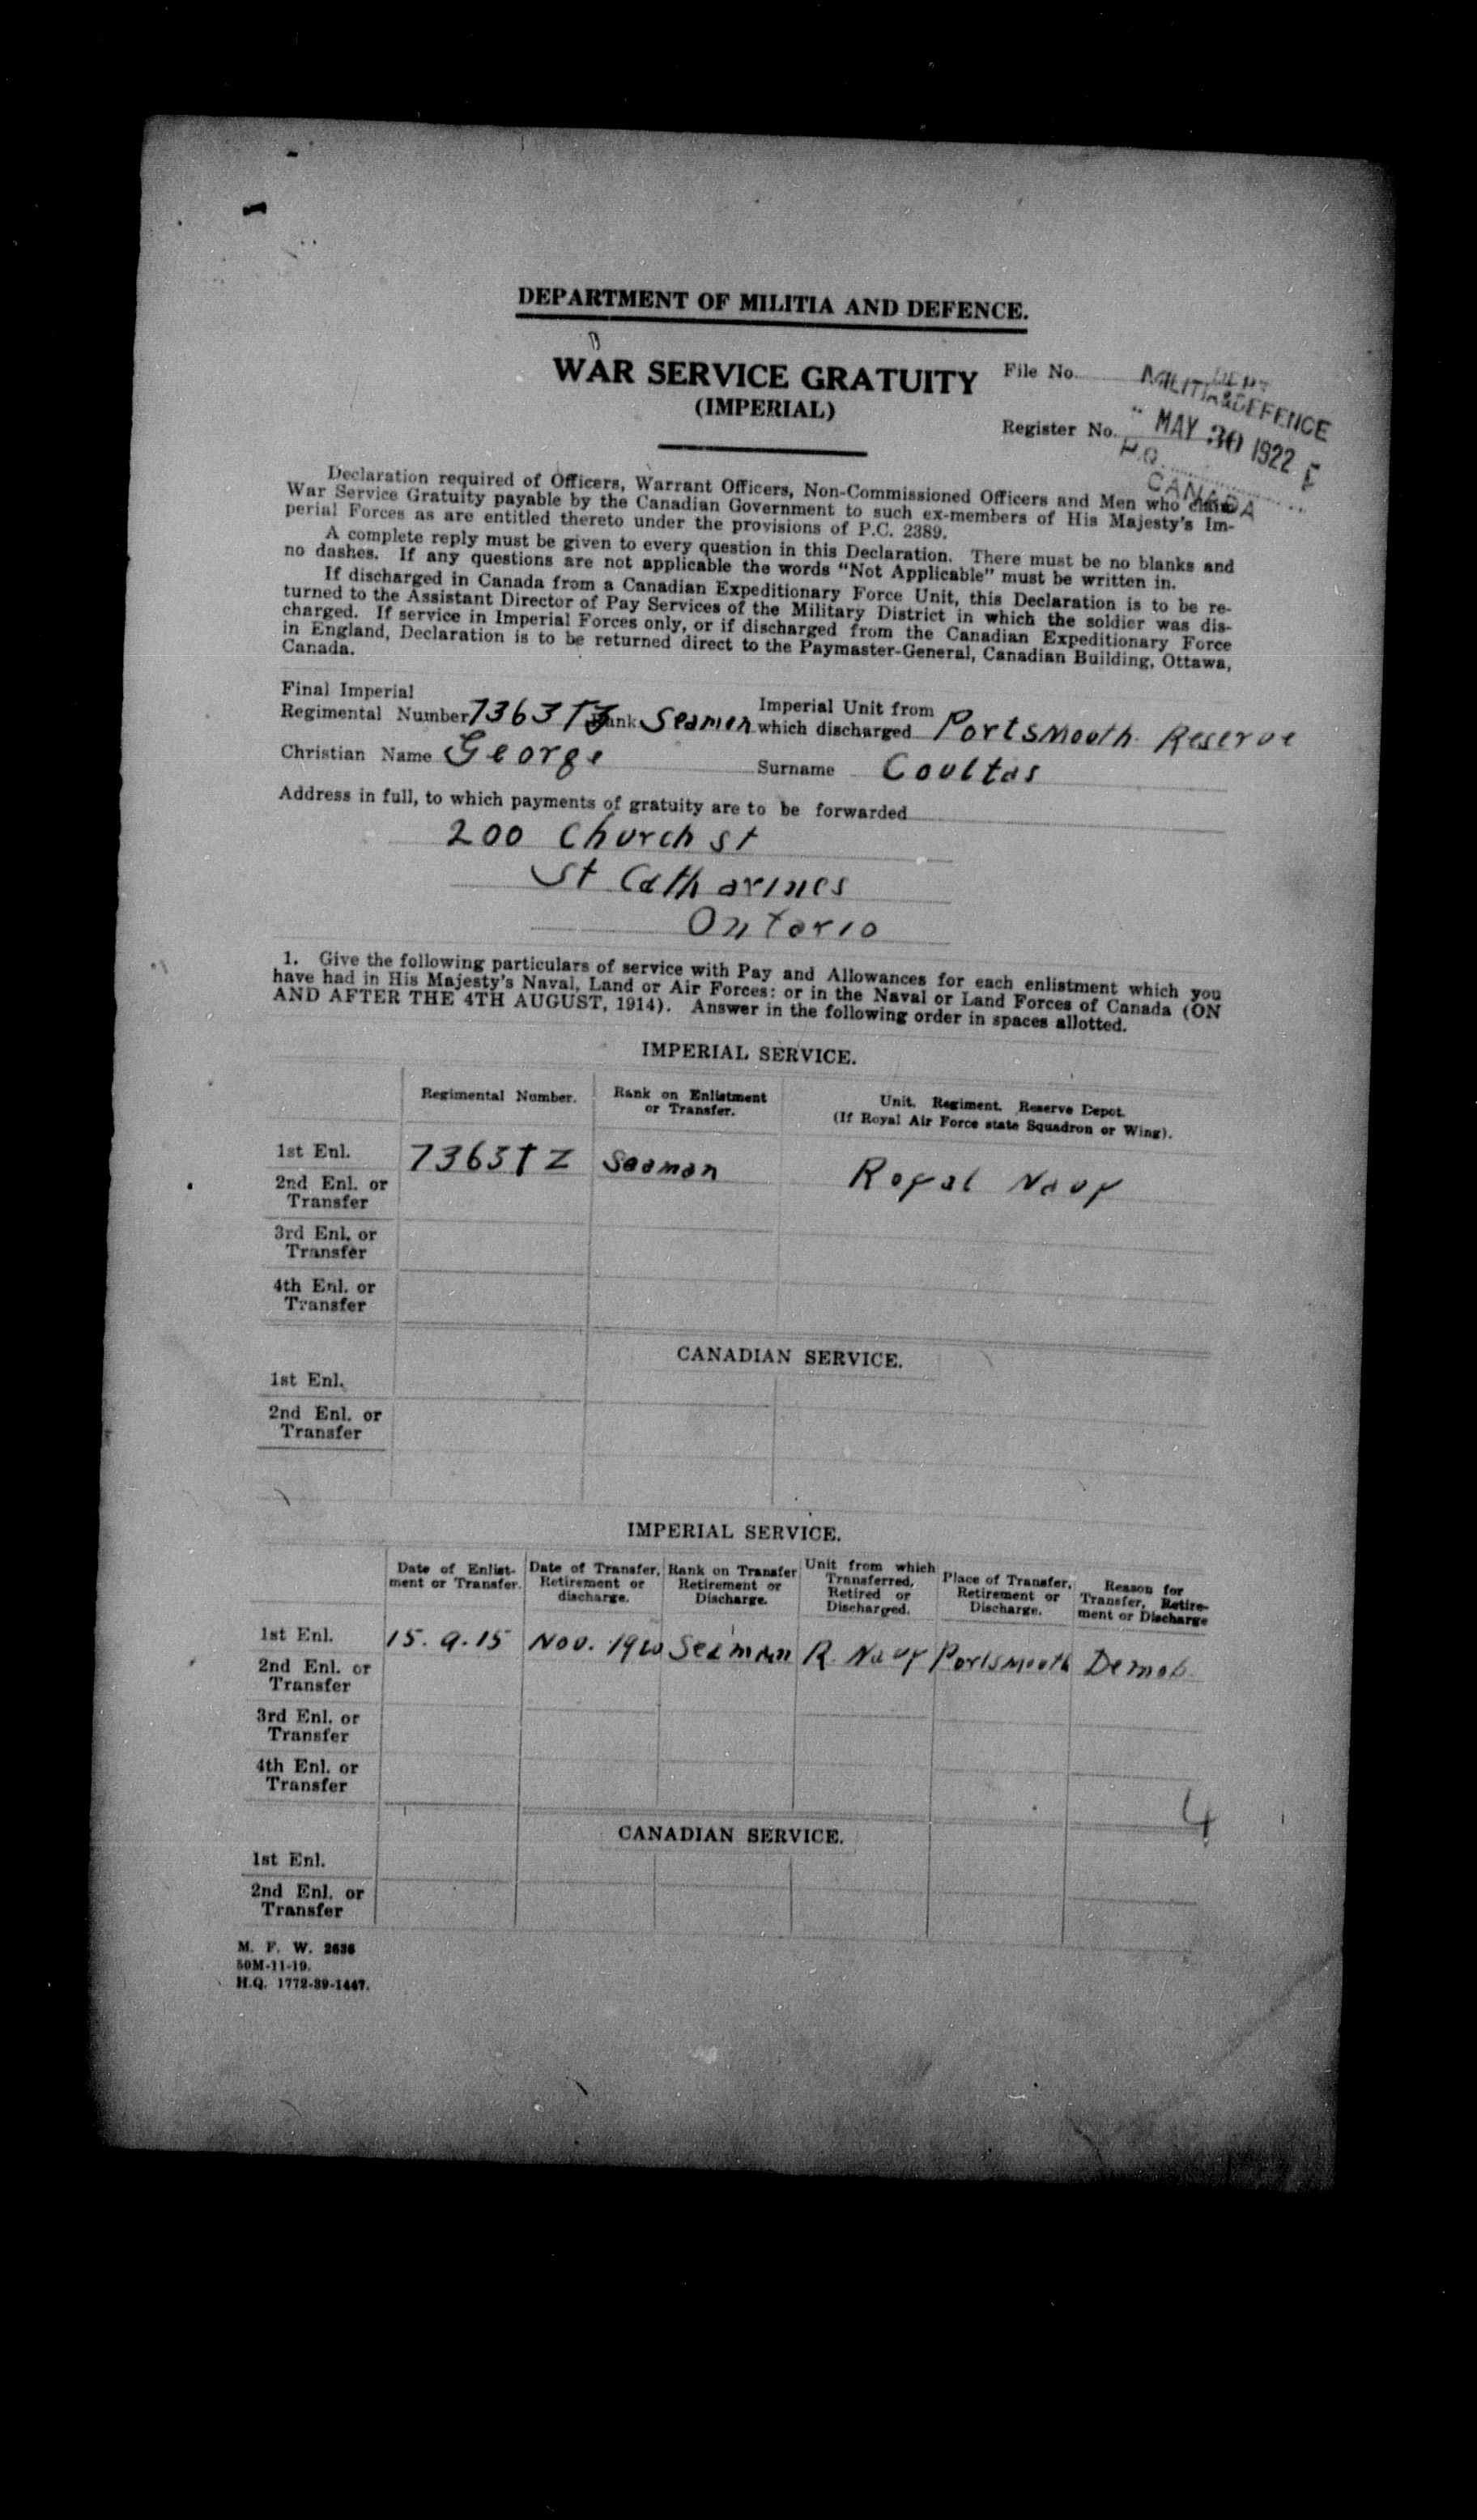 DEPARTMENT OF MILITIA AND DEFENCE.
WAR SERVICE GRATUITY
(IMPERIAL)
File No.
Register No.
DEPT
MILITIA & DEFENCE
MAY 30 1922
H.Q.
CANADA
Declaration required of Officers, Warrant Officers, Non-Commissioned Officers and Men who claim
War Service Gratuity payable by the Canadian Government to such ex-members of His Majesty's Im-
perial Forces as are entitled thereto under the provisions of P.C. 2389.
A complete reply must be given to every question in this Declaration. There must be no blanks and
no dashes. If any questions are not applicable the words "Not Applicable" must be written in.
If discharged in Canada from a Canadian Expeditionary Force Unit, this Declaration is to be re-
turned to the Assistant Director of Pay Services of the Military District in which the soldier was dis-
charged. If service in Imperial Forces only, or if discharged from the Canadian Expeditionary Force
in England, Declaration is to be returned direct to the Paymaster-General, Canadian Building, Ottawa,
Canada.
Final Imperial
Regimental Number 7363TZ Rank Seaman Imperial Unit from which discharged Portsmouth Reserve
Christian Name George Surname Coultas
Address in full, to which payments of gratuity are to be forwarded
200 Church st
St Catharines
Ontario
1. Give the following particulars of service with Pay and Allowances for each enlistment which you
have had in His Majesty's Naval, Land or Air Forces: or in the Naval or Land Forces of Canada (ON
AND AFTER THE 4TH AUGUST, 1914). Answer in the following order in spaces allotted.
IMPERIAL SERVICE.
Regimental Number. Rank on Enlistment or Transfer. Unit. Regiment. Reserve Depot. (If Royal Air Force state Squadron or Wing).
1st Enl. 7363TZ Seaman Royal Navy
2nd Enl. or
Transfer
3rd Enl. or
Transfer
4th Enl. or
Transfer
CANADIAN SERVICE.
1st Enl.
2nd Enl. or
Transfer
IMPERIAL SERVICE.
Date of Enlist-ment or Transfer. Date of Transfer, Retirement or discharge. Rank on Transfer Retirement or Discharge. Unit from which Transferred, Retired or Discharged. Place of Transfer, Retirement or Discharge. Reason for Transfer, Retire-ment or Discharge
1st Enl. 15.9.15 Nov. 1920 Seaman R. Navy Portsmouth Demob.
2nd Enl. or
Transfer
3rd Enl. or
Transfer
4th Enl. or
Transfer
4
CANADIAN SERVICE.
1st Enl.
2nd Enl. or
Transfer
M. F. W. 2636
50M-11-19.
H.Q. 1772-39-1447.